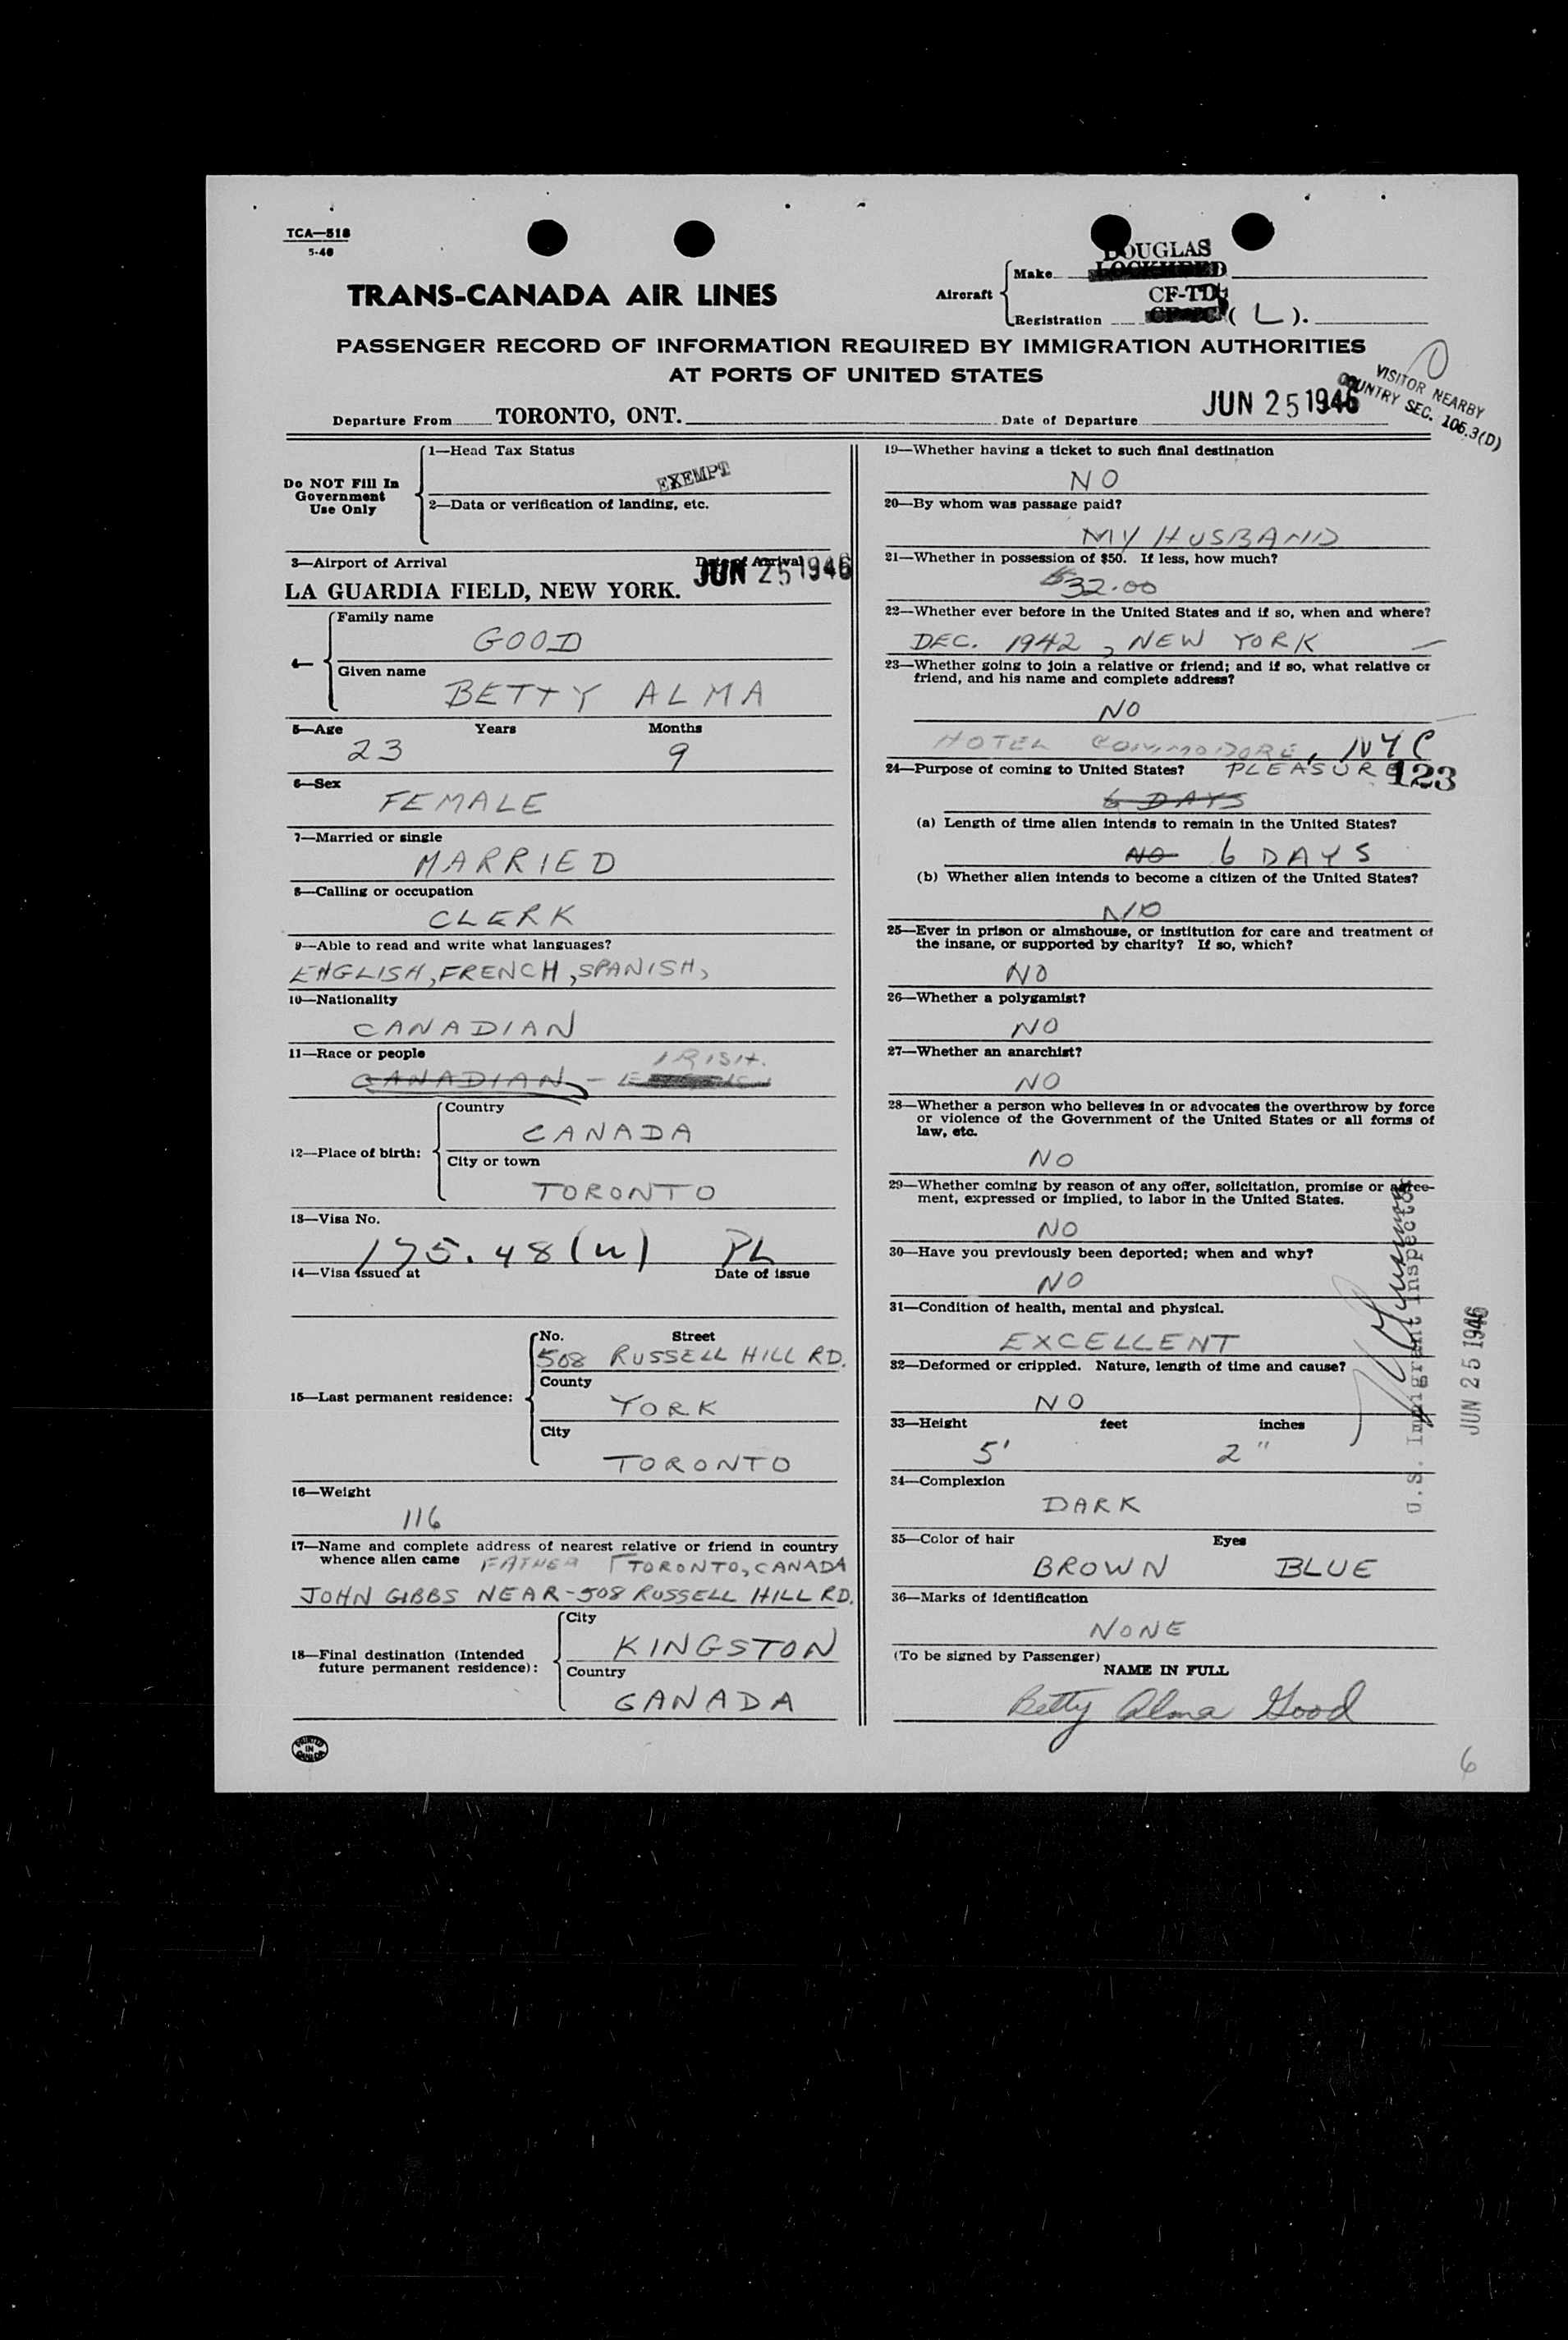 TCA—518
5-46
TRANS-CANADA AIR LINES
DOUGLAS
Aircraft
Make
LOCKHEED
CF-TD
Registration
( L ).
PASSENGER RECORD OF INFORMATION REQUIRED BY IMMIGRATION AUTHORITIES
AT PORTS OF UNITED STATES
VISITOR NEARBY
COUNTRY SEC. 106.3(D)
Departure From TORONTO, ONT. Date of Departure JUN 25 1946
Do NOT Fill In
Government
Use Only
1—Head Tax Status
EXEMPT
2—Data or verification of landing, etc.
3—Airport of Arrival Date of Arrival
LA GUARDIA FIELD, NEW YORK. JUN 25 1946
4—
Family name
GOOD
Given name
BETTY ALMA
5—Age Years Months
23 9
6—Sex
FEMALE
7—Married or single
MARRIED
8—Calling or occupation
CLERK
9—Able to read and write what languages?
ENGLISH, FRENCH, SPANISH,
10—Nationality
CANADIAN
11—Race or people
IRISH.
CANADIAN —
12—Place of birth:
Country
CANADA
City or town
TORONTO
13—Visa No.
175.48(u) PL
14—Visa issued at Date of issue
15—Last permanent residence:
No. Street
508 RUSSELL HILL RD.
County
YORK
City
TORONTO
16—Weight
116
17—Name and complete address of nearest relative or friend in country
whence alien came FATHER TORONTO, CANADA
JOHN GIBBS NEAR - 508 RUSSELL HILL RD.
18—Final destination (Intended
future permanent residence):
City
KINGSTON
Country
CANADA
PRINTED
IN
CANADA
19—Whether having a ticket to such final destination
NO
20—By whom was passage paid?
MY HUSBAND
21—Whether in possession of $50. If less, how much?
$32.00
22—Whether ever before in the United States and if so, when and where?
DEC. 1942, NEW YORK
23—Whether going to join a relative or friend; and if so, what relative or
friend, and his name and complete address?
NO
HOTEL COMMODORE, NYC
24—Purpose of coming to United States? PLEASURE
123
6 DAYS
(a) Length of time alien intends to remain in the United States?
NO 6 DAYS
(b) Whether alien intends to become a citizen of the United States?
NO
25—Ever in prison or almshouse, or institution for care and treatment of
the insane, or supported by charity? If so, which?
NO
26—Whether a polygamist?
NO
27—Whether an anarchist?
NO
28—Whether a person who believes in or advocates the overthrow by force
or violence of the Government of the United States or all forms of
law, etc.
NO
29—Whether coming by reason of any offer, solicitation, promise or agree-
ment, expressed or implied, to labor in the United States.
NO
30—Have you previously been deported; when and why?
NO
31—Condition of health, mental and physical.
EXCELLENT
32—Deformed or crippled. Nature, length of time and cause?
NO
33—Height feet inches
5' 2"
34—Complexion
DARK
35—Color of hair Eyes
BROWN BLUE
36—Marks of identification
NONE
(To be signed by Passenger)
NAME IN FULL
Betty Alma Good
U.S. Immigrant Inspector
JUN 25 1946
6